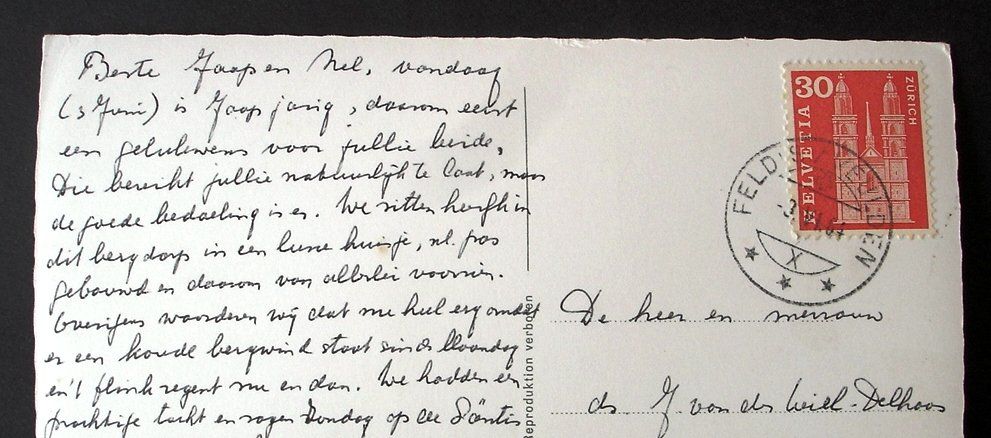 Beste Jaap en Nel, vandaag
(3 Juni) is Jaap jarig, daarom eerst
een gelukwens voor jullie beide.
Die bereikt jullie natuurlijk te laat, maar
de goede bedoeling is er. We zitten heerlijk in
dit bergdorp in een luxe huisje, nl. pas
gebouwd en daarom van allerlei voorzien.
Overigens waarderen wij dat nu heel erg omdat
er een koude bergwind staat sinds Maandag
en 't flink regent nu en dan. We hadden een
prachtige tocht en zagen Zondag op de Säntis
Reproduktion verboten
30
ZÜRICH
HELVETIA
FELDIS VEULDEN
-3.VI.64
X
De heer en mevrouw
ds. J. van der Wiel-Delhaas